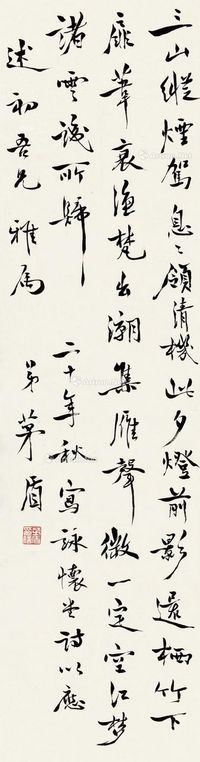 三山縱煙駕息息領清機此夕燈前影還栖竹下
扉葦哀漁梵出潮集雁聲微一定空江夢
諸雲識所歸
二十年秋寫詠懷堂詩以應
述初吾兄雅屬
弟茅盾